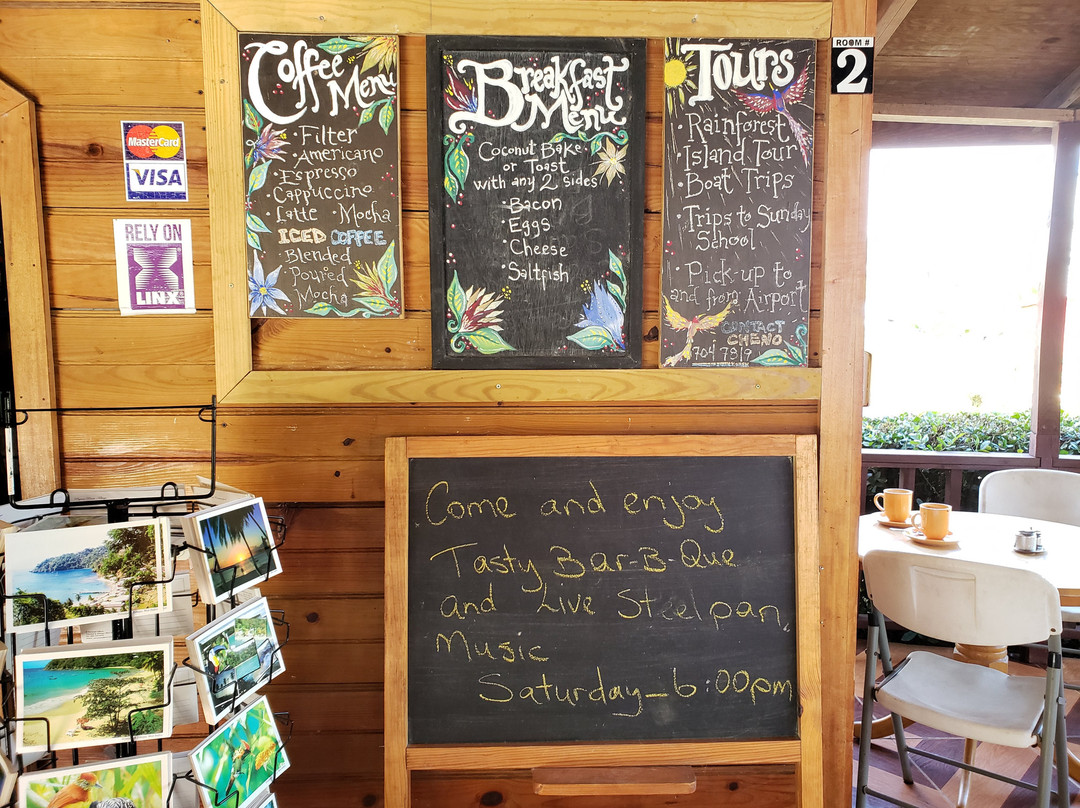 MasterCard
VISA
RELY ON
LINX
Coffee
Menu
• Filter
• Americano
• Espresso
• Cappuccino
• Latte • Mocha
ICED COFFEE
• Blended
• Poured
• Mocha
Breakfast
Menu
Coconut Bake
or Toast
with any 2 sides
• Bacon
• Eggs
• Cheese
• Saltfish
Tours
• Rainforest
• Island Tour
• Boat Trips
• Trips to Sunday
School
• Pick-up to
and from Airport
CONTACT
CHENO
704 7819
ROOM #
2
Come and enjoy
Tasty Bar-B-Que
and Live Steelpan
Music
Saturday - 6:00pm